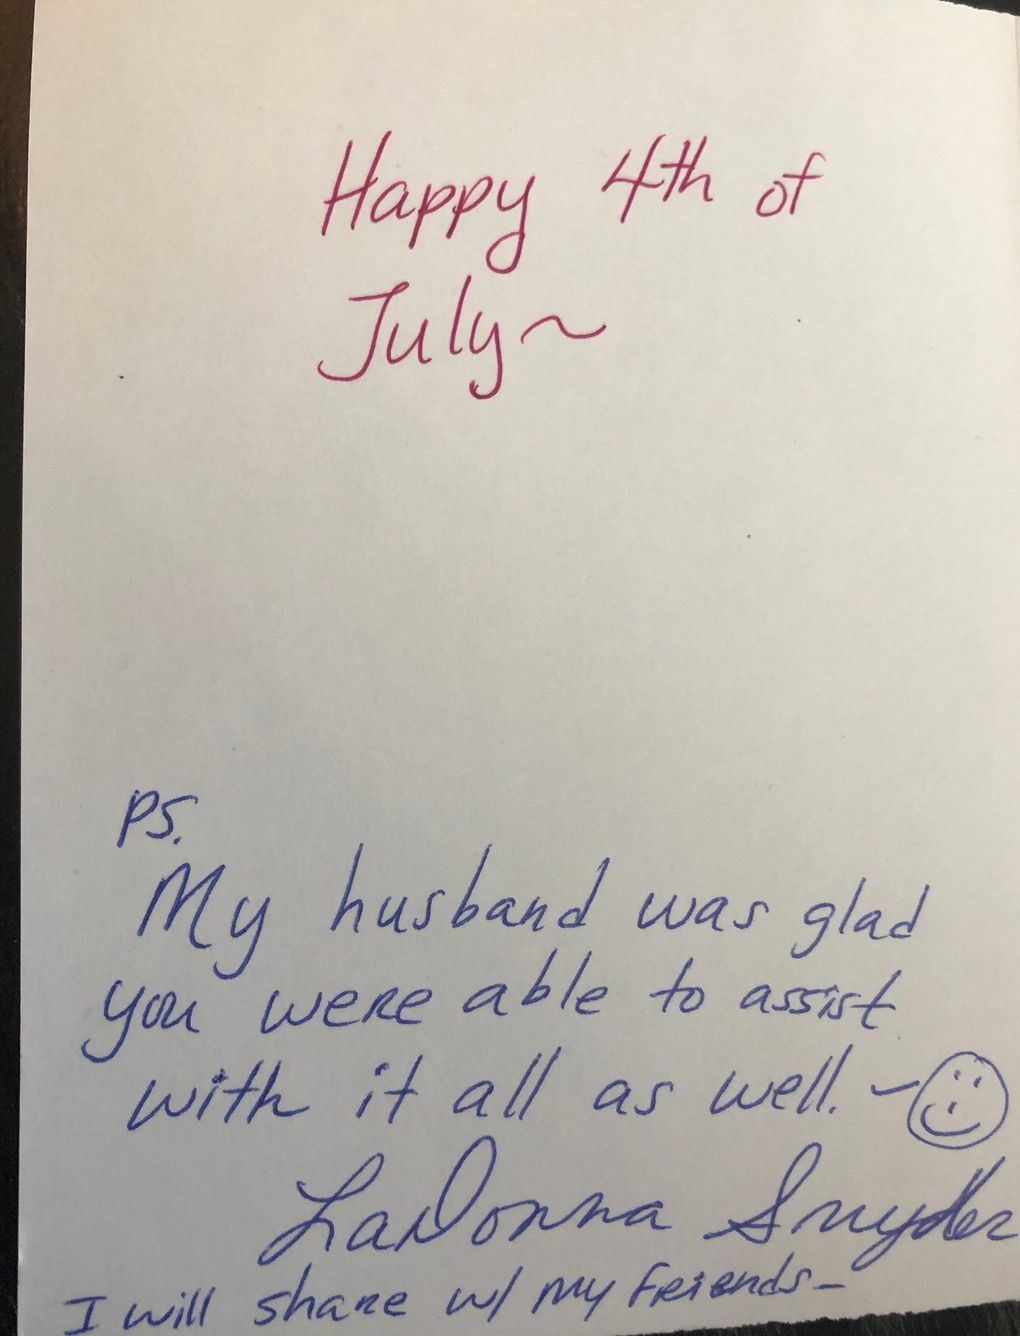 Happy 4th of
July~
PS.
My husband was glad
you were able to assist
with it all as well. ~
LaDonna Snyder
I will share w/ my friends-